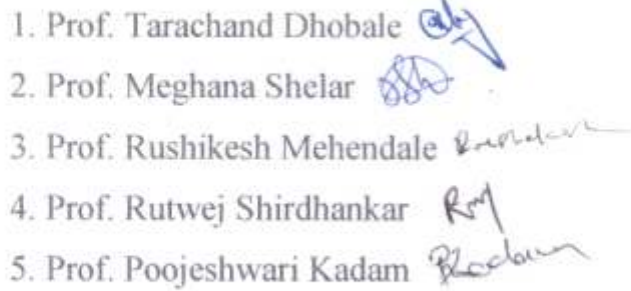 1. Prof. Tarachand Dhobale
2. Prof. Meghana Shelar
3. Prof. Rushikesh Mehendale
4. Prof. Rutwej Shirdhankar
5. Prof. Poojeshwari Kadam